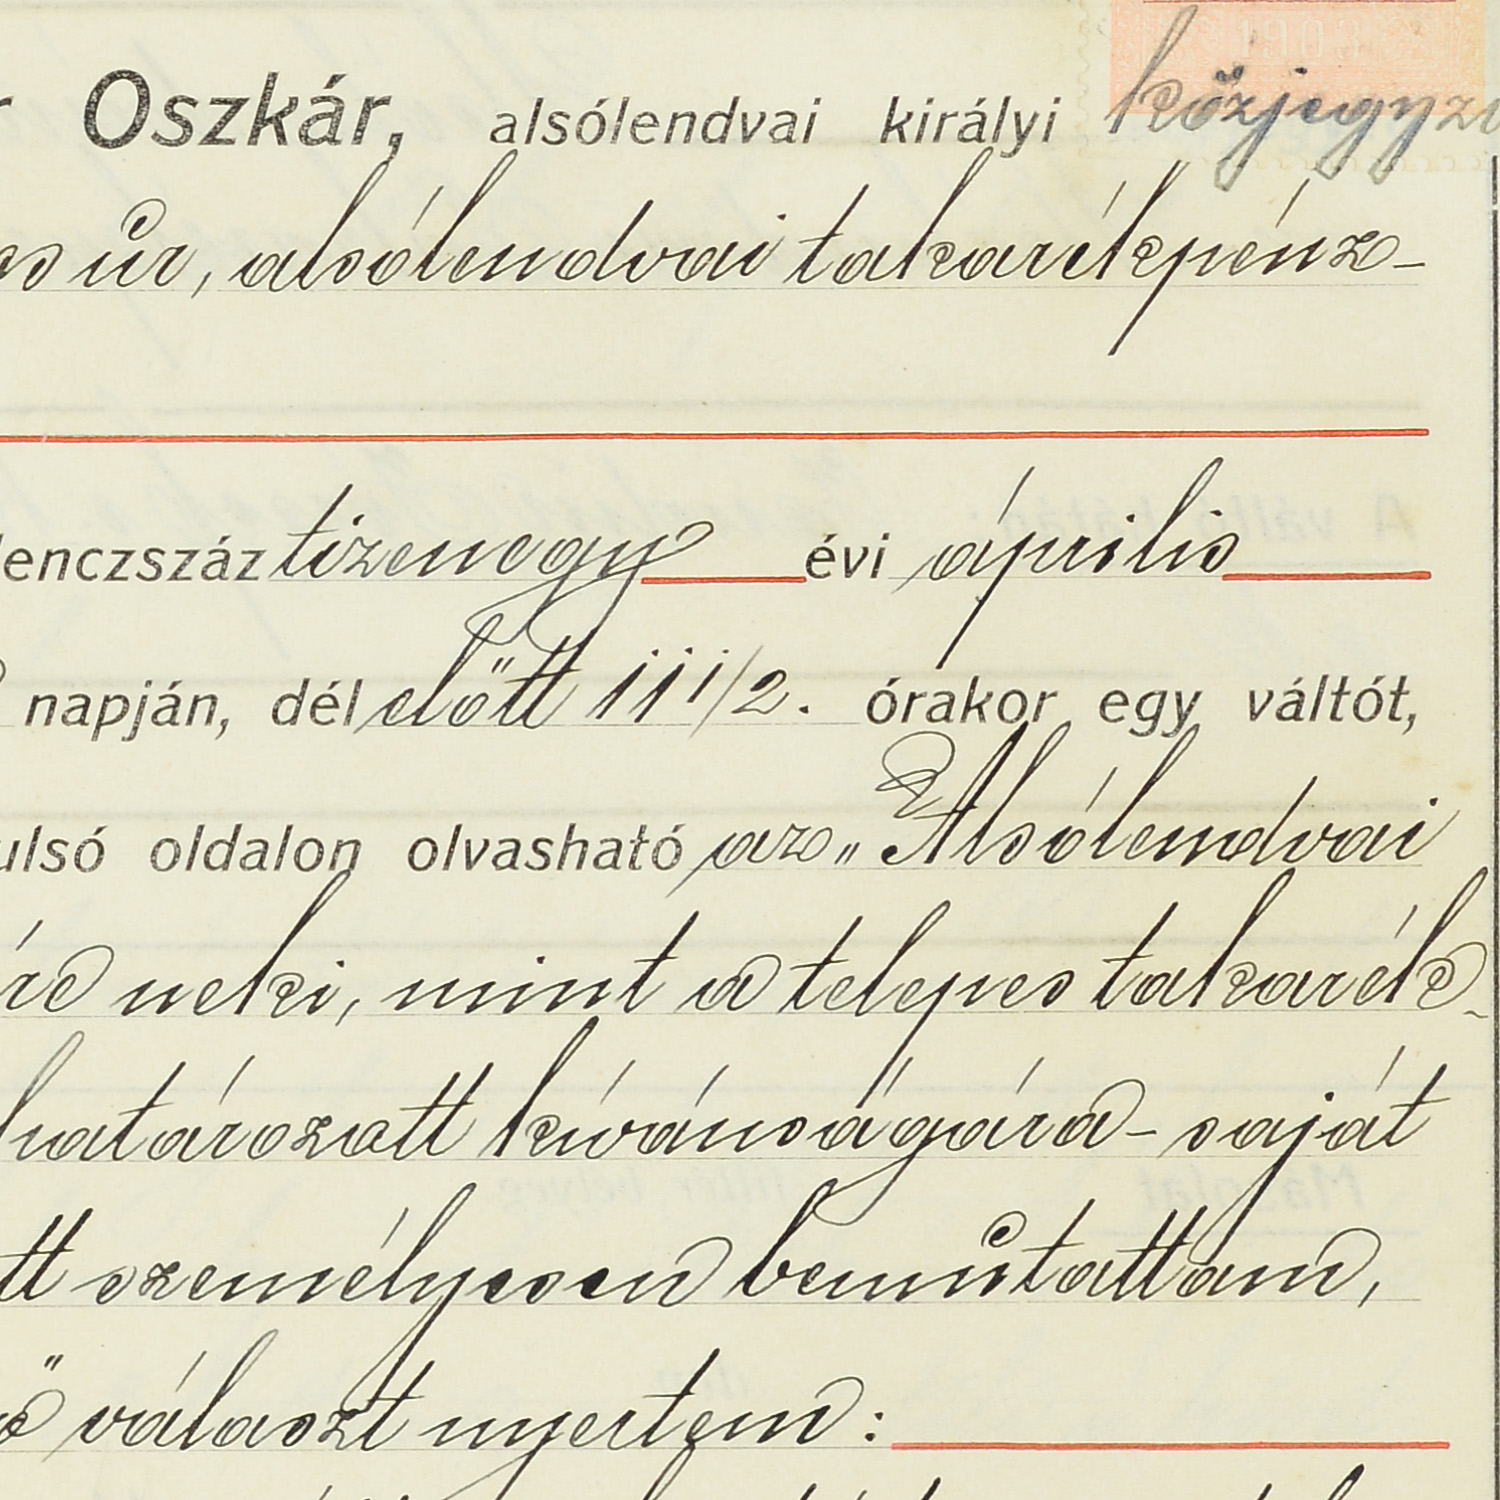 Oszkár, alsólendvai királyi közjegyző
úr, alsólendvai takarékpénz-
lenczszáz tizenegy évi április
napján, délelőtt 11 1/2. órakor egy váltót,
ulsó oldalon olvasható az „Alsólendvai
neki, mint a telepes takarék-
határozott kívánságára - saját
személyesen bemutattam,
választ nyertem: